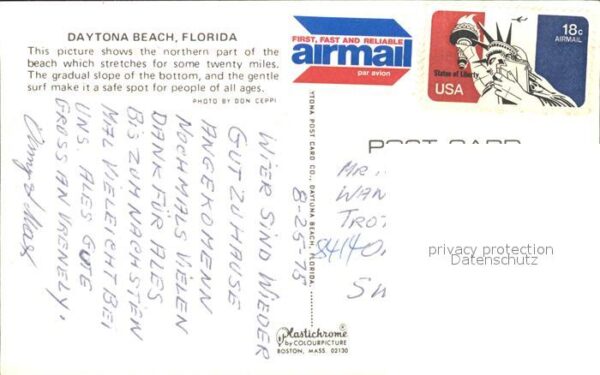 DAYTONA BEACH, FLORIDA
This picture shows the northern part of the
beach which stretches for some twenty miles.
The gradual slope of the bottom, and the gentle
surf make it a safe spot for people of all ages.
PHOTO BY DON CEPPI
FIRST, FAST AND RELIABLE
airmail
par avion
18c
AIRMAIL
Statue of Liberty
USA
POST CARD
8-25-75
WIER SIND WIEDER
GUT ZU HAUSE
ANGEKOMENN
NOCHMALS VIELEN
DANK FÜR ALES
BIS ZUM NACHSTEN
MAL VIELEICHT BEI
UNS. ALES GUTE
GROSS AN VRENELY.
YTONA POST CARD CO., DAYTONA BEACH, FLORIDA.
MR
WAN
TRO
8414
SW
privacy protection
Datenschutz
Plastichrome®
by COLOURPICTURE
BOSTON, MASS. 02130